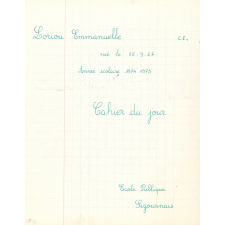 Loriou Emmanuelle C.E.
née le 22.9.67
Année scolaire 1974 1975
Cahier du jour
Ecole Publique
Sigournais